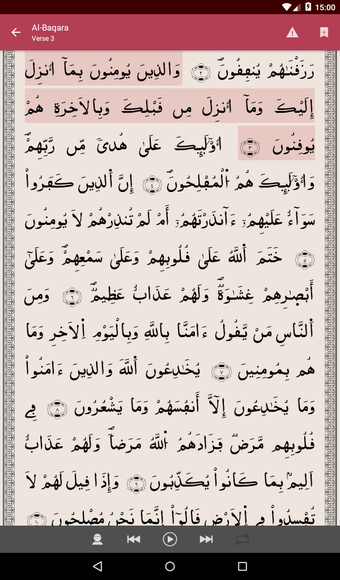 15:00
Al-Baqara
Verse 3
رَزَقْنَٰهُمْ يُنفِقُونَ ٢ وَالذِينَ يُومِنُونَ بِمَآ أُنزِلَ
إِلَيْكَ وَمَآ أُنزِلَ مِن قَبْلِكَ وَبِالَاخِرَةِ هُمْ
يُوقِنُونَ ٣ أُوْلَٰٓئِكَ عَلَىٰ هُدىٗ مِّن رَّبِّهِمْ
وَأُوْلَٰٓئِكَ هُمُ اُلْمُفْلِحُونَ ٤ إِنَّ اَلذِينَ كَفَرُواْ
سَوَآءٌ عَلَيْهِمُۥٓ ءَآنذَرْتَهُمُۥٓ أَمْ لَمْ تُنذِرْهُمْ لَا يُومِنُونَ
٥ خَتَمَ اَللَّهُ عَلَىٰ قُلُوبِهِمْ وَعَلَىٰ سَمْعِهِمْ وَعَلَىٰٓ
أَبْصٰ۪رِهِمْ غِشَٰوَةٞ وَلَهُمْ عَذَابٌ عَظِيمٞ ٦ وَمِنَ
اَلنَّاسِ مَنْ يَّقُولُ ءَامَنَّا بِاللَّهِ وَبِالْيَوْمِ اِلَاخِرِ وَمَا
هُم بِمُومِنِينَ ٧ يُخَٰدِعُونَ اَللَّهَ وَالذِينَ ءَامَنُواْ
وَمَا يُخَٰدِعُونَ إِلَّآ أَنفُسَهُمْ وَمَا يَشْعُرُونَ ٨ فِے
قُلُوبِهِم مَّرَضٞ فَزَادَهُمُ اُللَّهُ مَرَضاٗ وَلَهُمْ عَذَابٌ
اَلِيمُۢ بِمَا كَانُواْ يُكَذِّبُونَ ٩ وَإِذَا قِيلَ لَهُمْ لَا
تُفْسِدُواْ فِے اِلَارْضِ قَالُوٓاْ إِنَّمَا نَحْنُ مُصْلِحُونَ ١٠